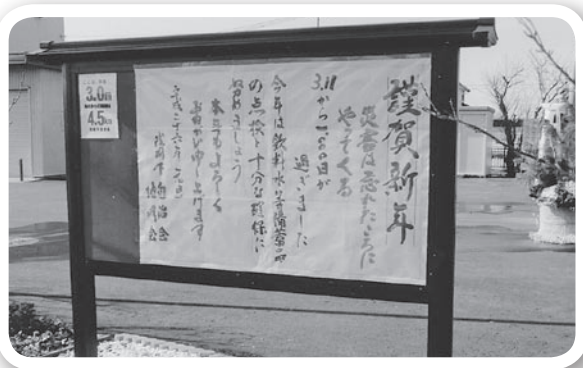 謹賀新年
災害は忘れたころに
やってくる
3.11から一〇〇〇日が
過ぎました
今年は飲料水
の点検と十分な確保に
努めましょう
本年もよろしく
お願い申し上げます
平成二十六年 元旦
自治会
3.0
4.5km